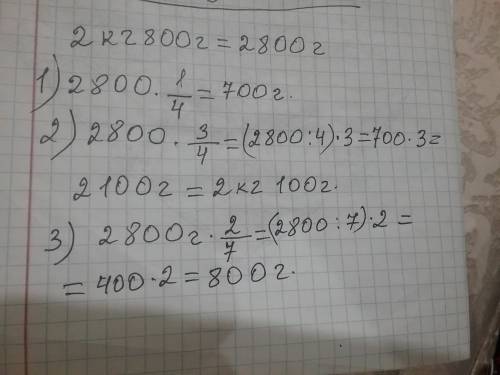 2 кг 800г = 2800г
1) 2800 · 1/4 = 700г.
2) 2800 · 3/4 = (2800:4)·3 = 700·3 =
2100г = 2кг 100г.
3) 2800г · 2/7 = (2800:7)·2 =
= 400·2 = 800г.